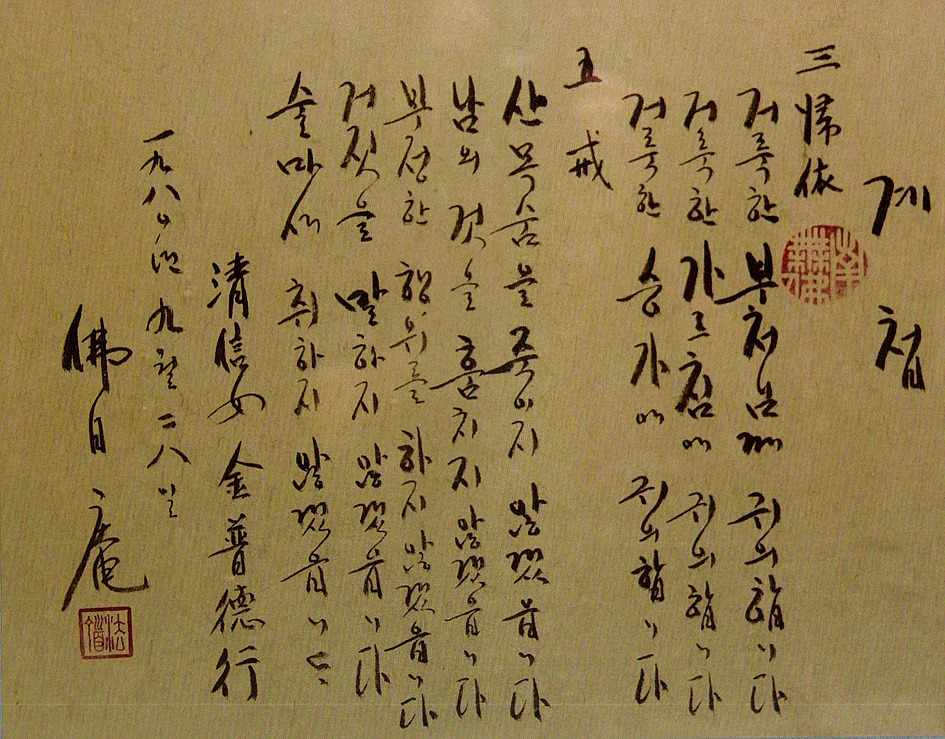 계첩
三歸依
거룩한 부처님께 귀의합니다
거룩한 가르침에 귀의합니다
거룩한 승가에 귀의합니다
五戒
산 목숨을 죽이지 않겠읍니다
남의 것을 훔치지 않겠읍니다
부정한 행위를 하지 않겠읍니다
거짓을 말하지 않겠읍니다
술 마셔 취하지 않겠읍니다
清信女 金普德行
一九八 년 九월 二八일
佛日庵
法頂